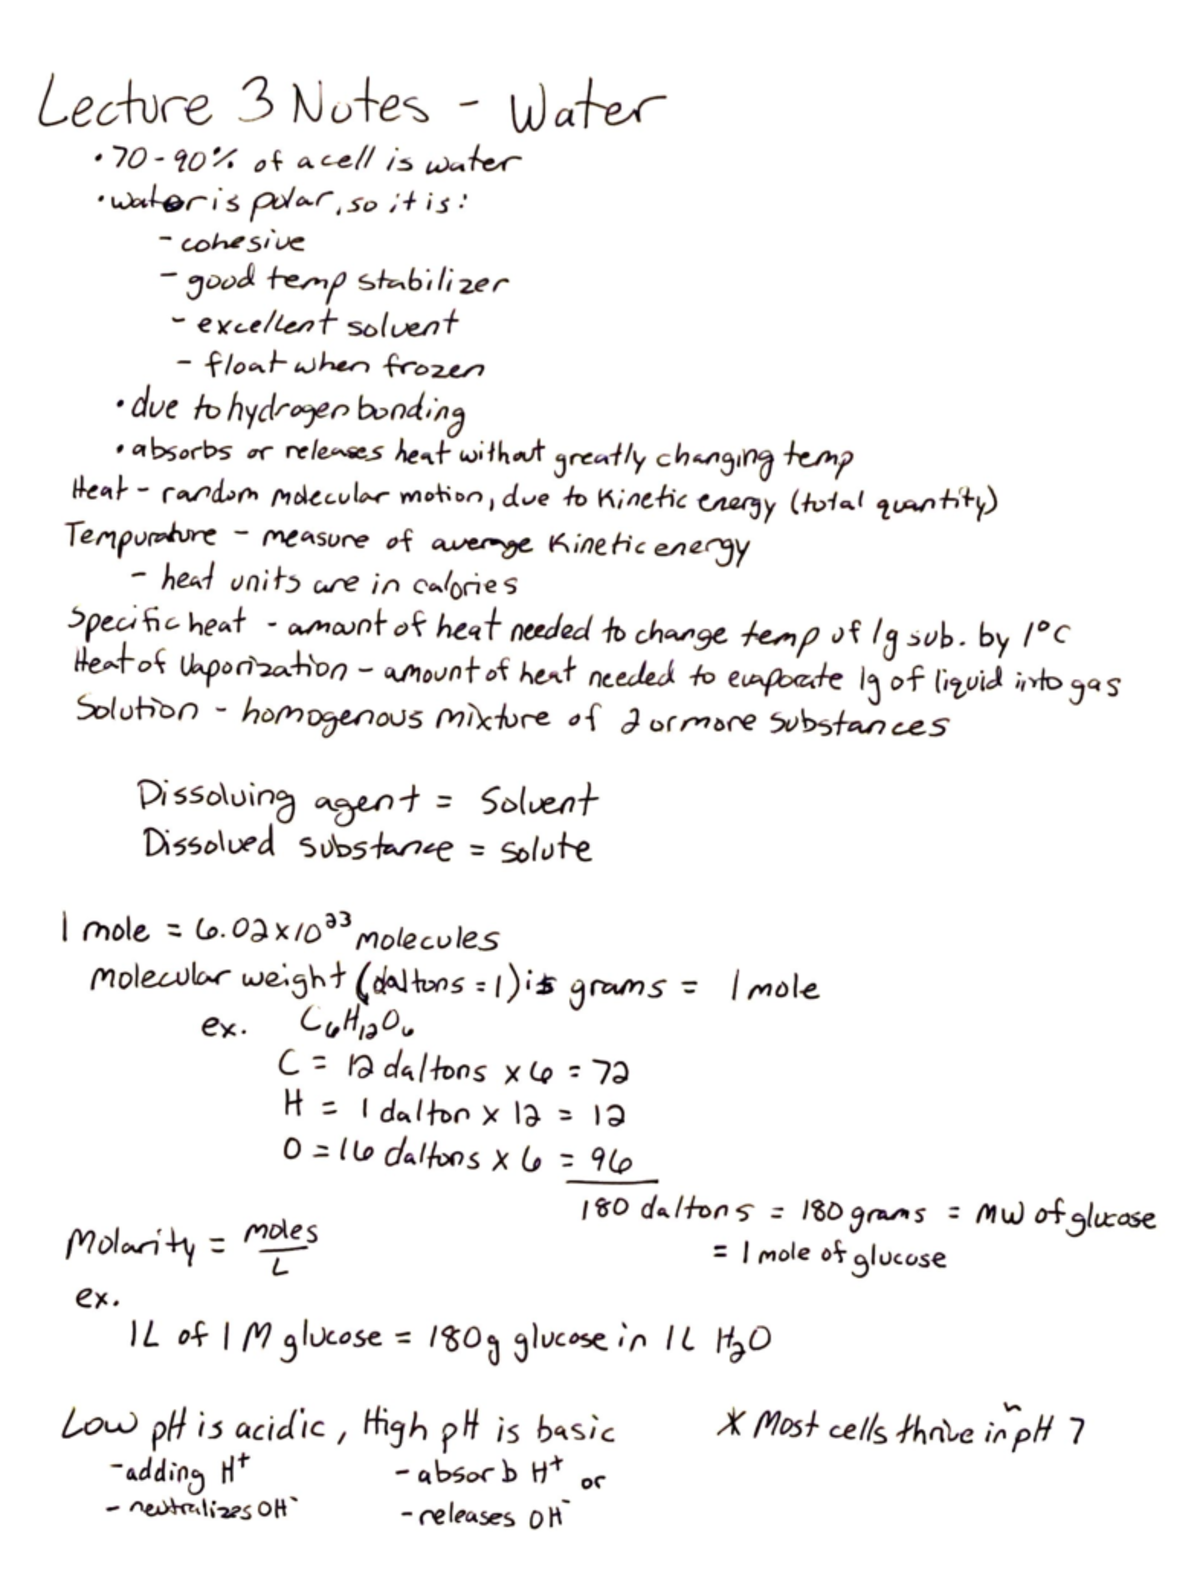 Lecture 3 Notes - Water
• 70-90% of a cell is water
• water is polar, so it is:
- cohesive
- good temp stabilizer
- excellent solvent
- float when frozen
• due to hydrogen bonding
• absorbs or releases heat without greatly changing temp
Heat - random molecular motion, due to Kinetic energy (total quantity)
Tempurature - measure of average Kinetic energy
- heat units are in calories
Specific heat - amount of heat needed to change temp of 1g sub. by 1°C
Heat of Vaporization - amount of heat needed to evaporate 1g of liquid into gas
Solution - homogenous mixture of 2 or more substances
Dissolving agent = Solvent
Dissolved substance = solute
1 mole = 6.02 x 10²³ molecules
molecular weight (daltons = 1) is grams = 1 mole
ex. C₆H₁₂O₆
C = 12 daltons x 6 = 72
H = 1 dalton x 12 = 12
O = 16 daltons x 6 = 96
180 daltons = 180 grams = MW of glucose
= 1 mole of glucose
Molarity = moles
L
ex.
1L of 1 M glucose = 180g glucose in 1L H₂O
Low pH is acidic, High pH is basic
* Most cells thrive in ~pH 7
- adding H⁺
- absorb H⁺ or
- neutralizes OH⁻
- releases OH⁻